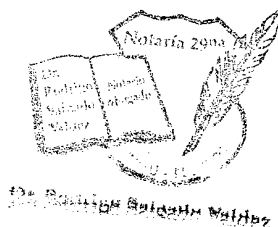 Notaría 29na
Dr.
Rodrigo
Salgado
Valdez
Notario
Abogado
Dr. Rodrigo Salgado Valdez